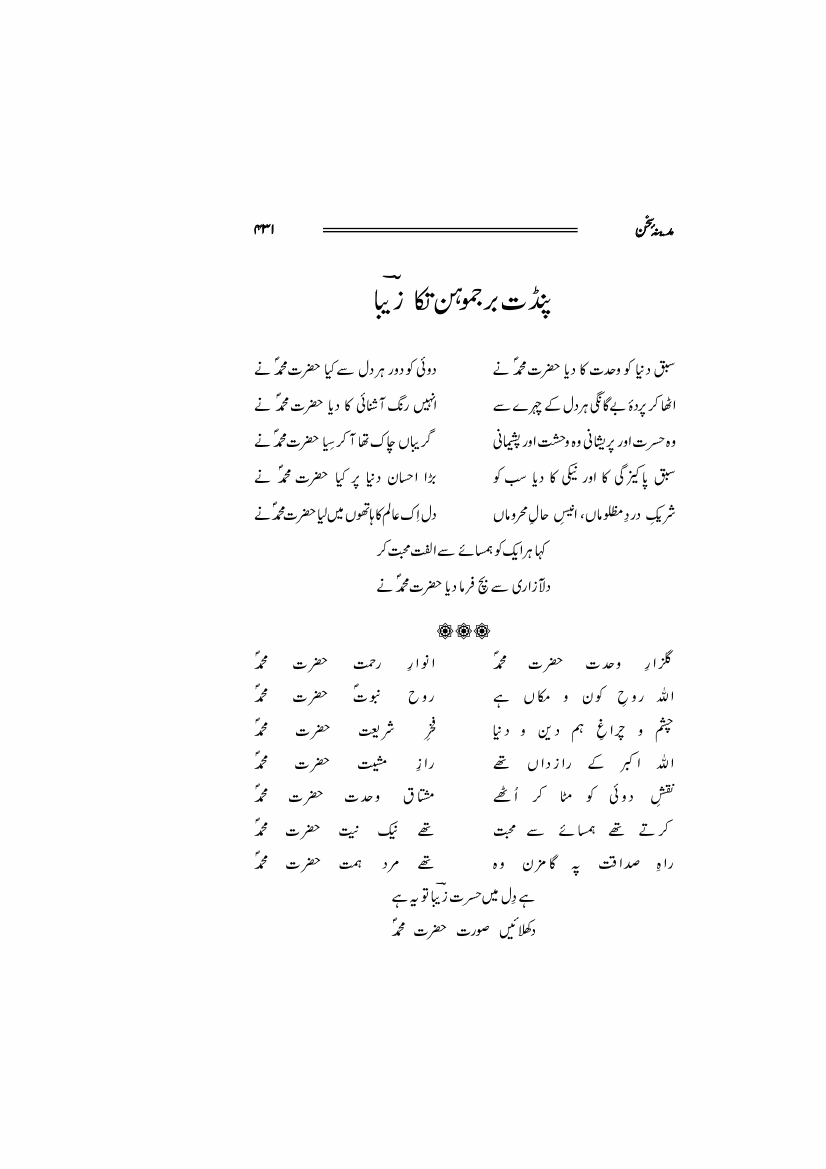 مدینہ سخن ۴۳۱
پنڈت برجموہن تکا زیباؔ
سبق دنیا کو وحدت کا دیا حضرت محمدؐ نے دوئی کو دور ہر دل سے کیا حضرت محمدؐ نے
اٹھا کر پردۂ بے گانگی ہر دل کے چہرے سے انہیں رنگ آشنائی کا دیا حضرت محمدؐ نے
وہ حسرت اور پریشانی وہ وحشت اور پشیمانی گریباں چاک تھا آ کر سِیا حضرت محمدؐ نے
سبق پاکیزگی کا اور نیکی کا دیا سب کو بڑا احسان دنیا پر کیا حضرت محمدؐ نے
شریکِ دردِ مظلوماں، انیسِ حالِ محروماں دل اِک عالم کا ہاتھوں میں لیا حضرت محمدؐ نے
کہا ہر ایک کو ہمسائے سے الفت محبت کر
دلآزاری سے بچ فرما دیا حضرت محمدؐ نے
گلزارِ وحدت حضرت محمدؐ انوارِ رحمت حضرت محمدؐ
اللہ روحِ کون و مکاں ہے روح نبوتؐ حضرت محمدؐ
چشم و چراغِ ہم دین و دنیا فخرِ شریعت حضرت محمدؐ
اللہ اکبر کے رازداں تھے رازِ مشیت حضرت محمدؐ
نقشِ دوئی کو مٹا کر اُٹھے مشتاق وحدت حضرت محمدؐ
کرتے تھے ہمسائے سے محبت تھے نیک نیت حضرت محمدؐ
راہِ صداقت پہ گامزن وہ تھے مرد ہمت حضرت محمدؐ
ہے دِل میں حسرت زیباؔ تو یہ ہے
دکھلائیں صورت حضرت محمدؐ